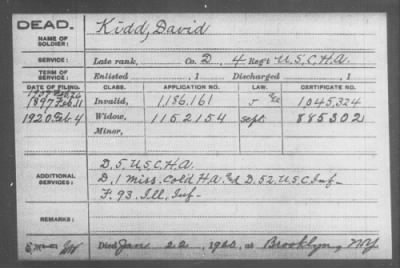 DEAD.
NAME OF SOLDIER: Kidd, David
SERVICE: Late rank, Co. D, 4 Regt U.S.C.H.A.
TERM OF SERVICE: Enlisted , 1 Discharged , 1
DATE OF FILING. CLASS. APPLICATION NO. LAW. CERTIFICATE NO.
1897 Feb. 11 Invalid, 1186.161 1045.324
1920 Feb 4 Widow, 1152154 Sept. 885302
Minor,
ADDITIONAL SERVICES: D. 5 U.S.C.H.A.
D. 1 Miss. Cold H.A. & D. 52. U.S.C Inf-
F. 93. Ill. Inf-
REMARKS:
Died Jan 22, at Brooklyn, NY